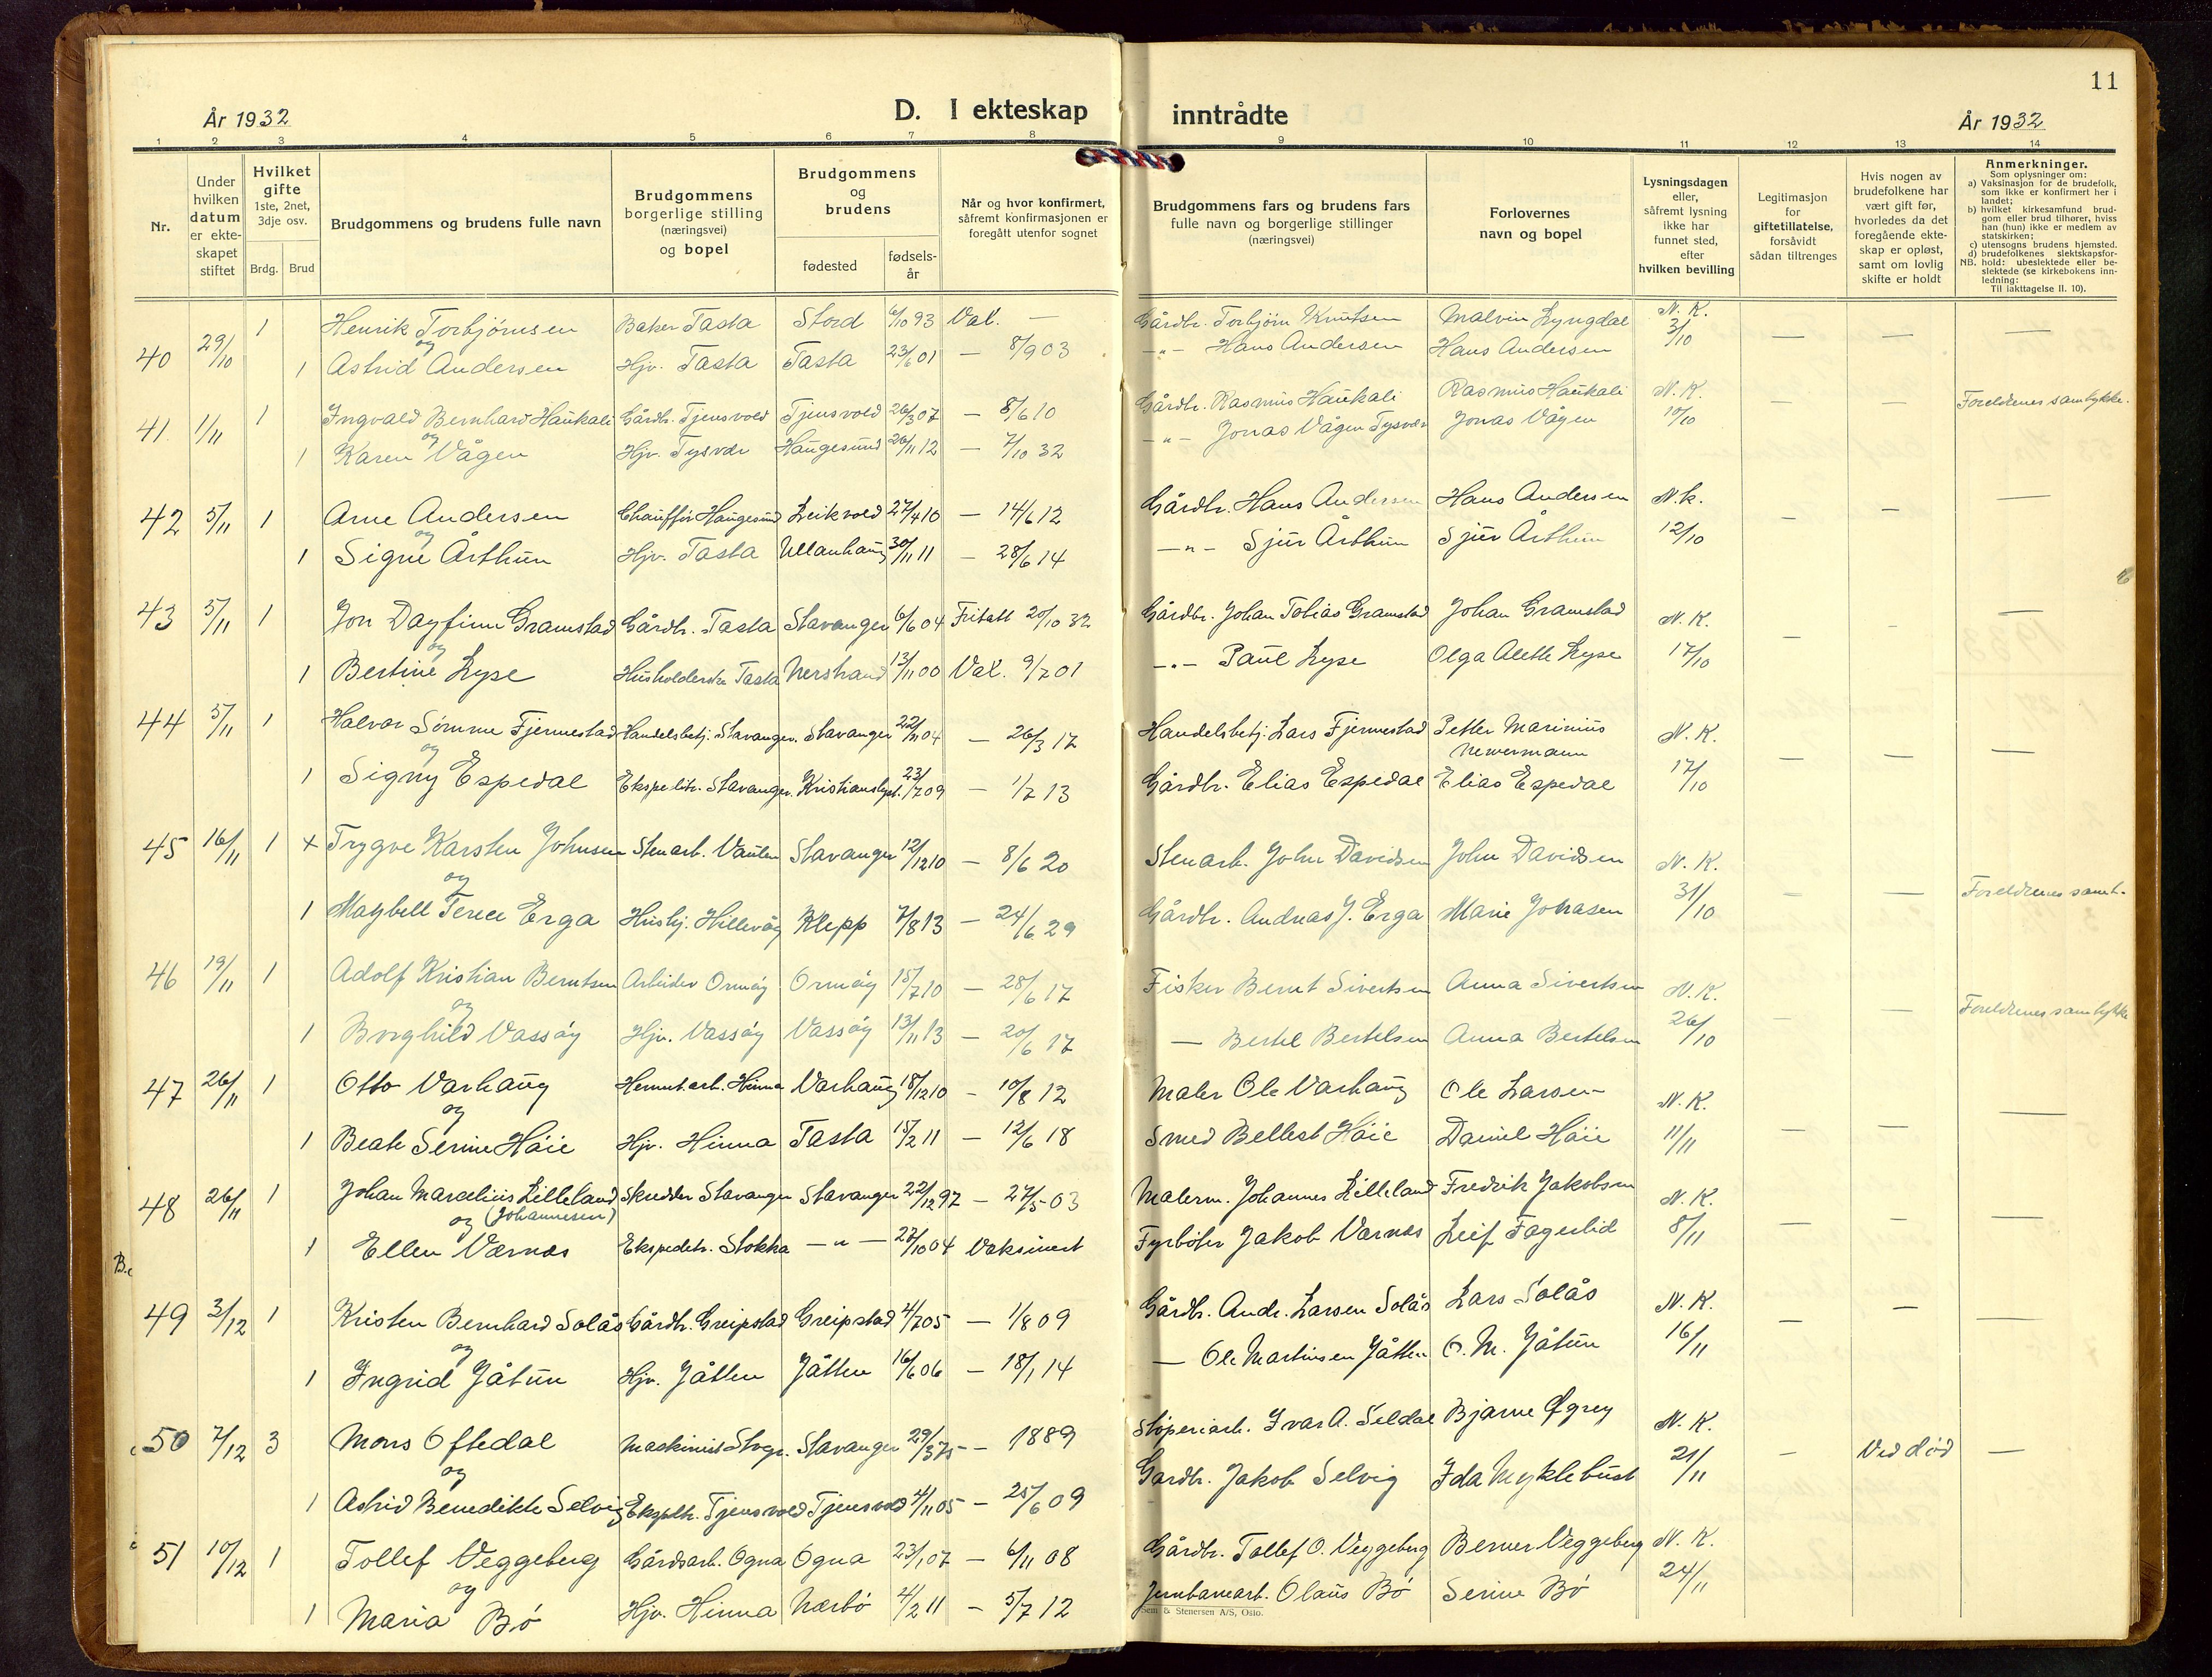 11
År 1932 D. I ekteskap inntrådte År 1932
1 2 3 4 5 6 7 8 9 10 11 12 13 14
Nr.
Under hvilken datum er ekteskapet stiftet
Hvilket gifte 1ste, 2net, 3dje osv.
Brdg. Brud
Brudgommens og brudens fulle navn
Brudgommens borgerlige stilling (næringsvei) og bopel
Brudgommens og brudens
fødested
fødselsår
Når og hvor konfirmert, såfremt konfirmasjonen er foregått utenfor sognet
Brudgommens fars og brudens fars fulle navn og borgerlige stillinger (næringsvei)
Forlovernes navn og bopel
Lysningsdagen eller, såfremt lysning ikke har funnet sted, efter hvilken bevilling
Legitimasjon for giftetillatelse, forsåvidt sådan tiltrenges
Hvis nogen av brudefolkene har vært gift før, hvorledes da det foregående ekteskap er opløst, samt om lovlig skifte er holdt
Anmerkninger.
Som oplysninger om:
a) Vaksinasjon for de brudefolk, som ikke er konfirmert her i landet;
b) hvilket kirkesamfund brudgom eller brud tilhører, hviss han (hun) ikke er medlem av statskirken;
c) utensogns brudens hjemsted.
d) brudefolkenes slektskapsforhold: ubeslektede eller beslektede (se kirkebokens innledning:
NB.
Til iakttagelse II. 10).
40 29/10 1 Henrik Torbjørnsen Baker Tasta Stord 6/10 93 Val. — Gårdbr. Torbjørn Knutsen Malvin Lyngdal N. K. 3/10 — — —
og
1 Astrid Andersen Hjv. Tasta Tasta 23/6 01 — 8/9 03 —"— Hans Andersen Hans Andersen
41 1/11 1 Ingvald Bernhard Haukali Gårdbr. Tjensvold Tjensvold 26/3 07 — 8/6 10 Gårdbr. Rasmus Haukali Rasmus Haukali N. K. 10/10 — — Foreldrenes samtykke.
og
1 Karen Vågen Hjv. Tysvær Haugesund 26/11 12 — 7/10 32 —"— Jonas Vågen Tysvær Jonas Vågen
42 5/11 1 Arne Andersen Chauffør Haugesund Leikvold 27/4 10 — 14/6 12 Gårdbr. Hans Andersen Hans Andersen N. K. 12/10 — — —
og
1 Signe Årthun Hjv. Tasta Ullanhaug 30/11 11 — 28/6 14 —"— Sjur Årthun Sjur Årthun
43 5/11 1 Jon Dagfinn Gramstad Gårdbr. Tasta Stavanger 6/6 04 Fritatt 20/10 32 Gårdbr. Johan Tobias Gramstad Johan Gramstad N. K. 17/10 — — —
og
1 Bertine Lyse Husholderske Tasta Nerstrand 13/11 00 Val. 9/7 01 —"— Paul Lyse Olga Alette Lyse
44 5/11 1 Halvor Sømme Fjermestad Handelsbetj. Stavanger. Stavanger 22/11 04 — 26/3 17 Handelsbetj. Lars Fjermestad Petter Marinius Newermann N. K. 17/10 — — —
og
1 Signy Espedal Ekspeditr. Stavanger. Kristianslyst. 23/7 09 — 1/7 13 Gårdbr. Elias Espedal Elias Espedal
45 16/11 1 x Trygve Karsten Johnsen Stenarb. Vaulen Stavanger 12/12 10 — 8/6 20 Stenarb. John Davidsen John Davidsen N. K. 31/10 — — Foreldrenes samt.
og
1 Maybell Terece Erga Hushj. Hillevåg Klepp 7/8 13 — 24/6 29 Gårdbr. Andreas J. Erga Marie Johnsen
46 19/11 1 Adolf Kristian Berntsen Arbeider Ormøy Ormøy 15/7 10 — 28/6 17 Fisker Bernt Sivertsen Anna Sivertsen N. K. 26/10 — — Foreldrenes samtykke
og
1 Borghild Vassøy Hjv. Vassøy Vassøy 13/11 13 — 20/6 17 — Bertel Bertelsen Anna Bertelsen
47 26/11 1 Otto Varhaug Hermet.arb. Hinna Varhaug 18/12 10 — 10/8 12 Maler Ole Varhaug Ole Larsen N. K. 11/11 — — —
og
1 Beate Serine Høie Hjv. Hinna Tasta 15/2 11 — 12/6 18 Smed Bellest Høie Daniel Høie
48 26/11 1 Johan Marcelius Lilleland Skredder Stavanger Stavanger 22/12 97 — 27/5 03 Malerm. Johannes Lilleland Fredrik Jakobsen N. K. 8/11 — — —
og (Johannesen)
1 Ellen Værnæs Ekspedtr. Stokka —"— 27/10 04 Vaksinert Fyrbøter Jakob Værnæs Leif Fagerlid
49 3/12 1 Kristen Bernhard Solås Gårdb. Greipstad Greipstad 4/7 05 — 1/8 09 Gårdbr. Andr. Larsen Solås Lars Solås N. K. 16/11 — — —
og
1 Ingrid Jåtun Hjv. Jåtten Jåtten 16/6 06 — 18/1 14 — Ole Martinsen Jåtten O. M. Jåtun
50 7/12 3 Mons Oftedal Maskinist Stvgr. Stavanger 29/3 75 — 1889 Støperiarb. Ivar A. Seldal Bjarne Øgrey N. K. 21/11 — Ved død —
og
1 Astrid Benedikte Selvig Ekspltr. Tjensvold Tjensvold 4/11 05 — 25/6 09 Gardbr. Jakob Selvig Ida Myklebust
51 10/12 1 Tollef Veggeberg Gårdsarb. Ogna Ogna 23/1 07 — 6/11 08 Gårdbr. Tollef O. Veggeberg Berner Veggeberg N. K. 24/11
og
1 Maria Bø Hjv. Hinna Nærbø 4/2 11 — 5/7 12 Jernbanearb. Olaus Bø Serine Bø
Sem & Stenersen A/S, Oslo.